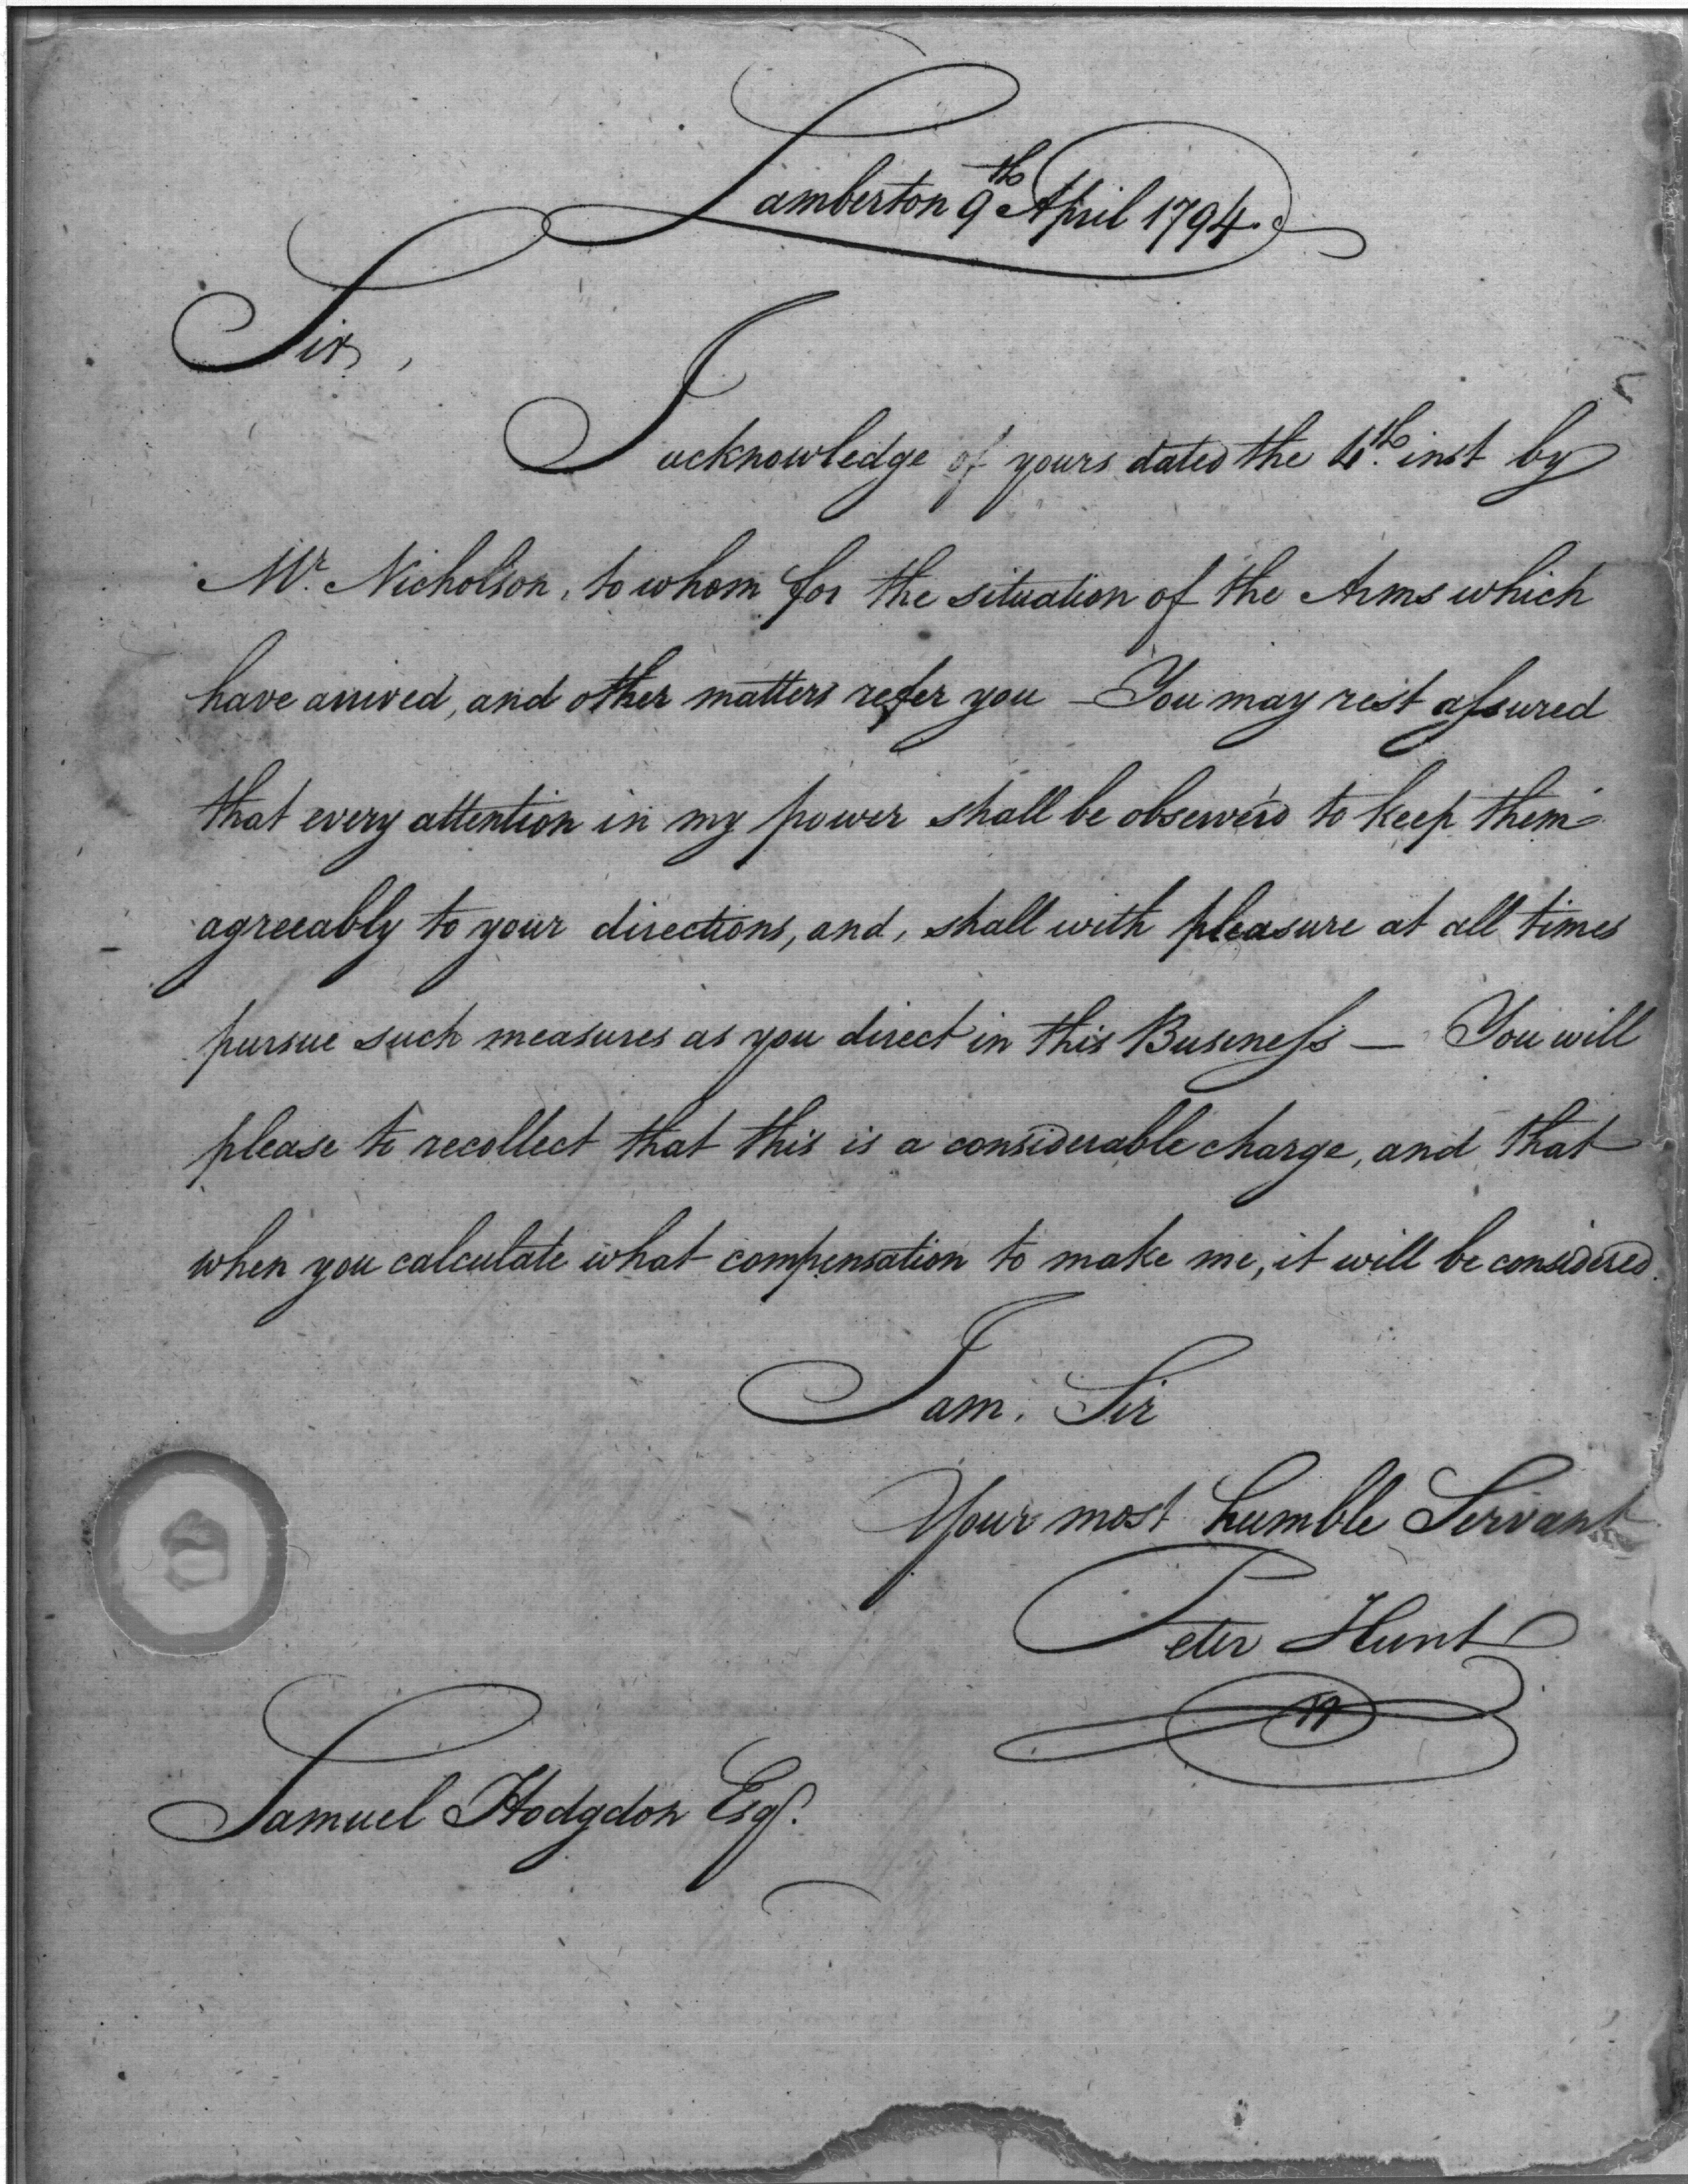 Lamberton 9th April 1794.
Sir,
I acknowledge of yours dated the 4th. inst by
Mr. Nicholson, to whom for the situation of the Arms which
have arrived, and other matters refer you – You may rest assured
that every attention in my power shall be observe'd to keep them
agreeably to your directions, and, shall with pleasure at all times
pursue such measures as you direct in this Business — You will
please to recollect that this is a considerable charge, and that
when you calculate what compensation to make me, it will be considered.
I am, Sir
Your most humble Servant
Peter Hunt
Samuel Hodgdon Esqr.